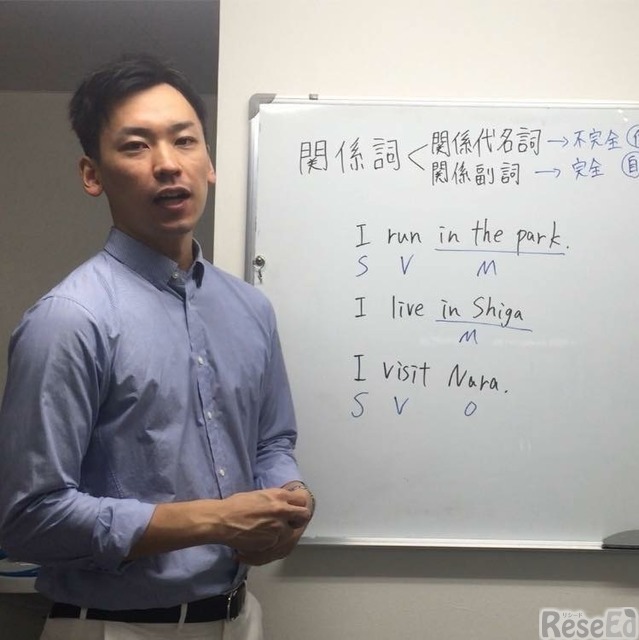 関係詞 < 関係代名詞 → 不完全
関係副詞 → 完全 自
I run in the park.
S V M
I live in Shiga
M
I visit Nara.
S V O
リシード
ReseEd